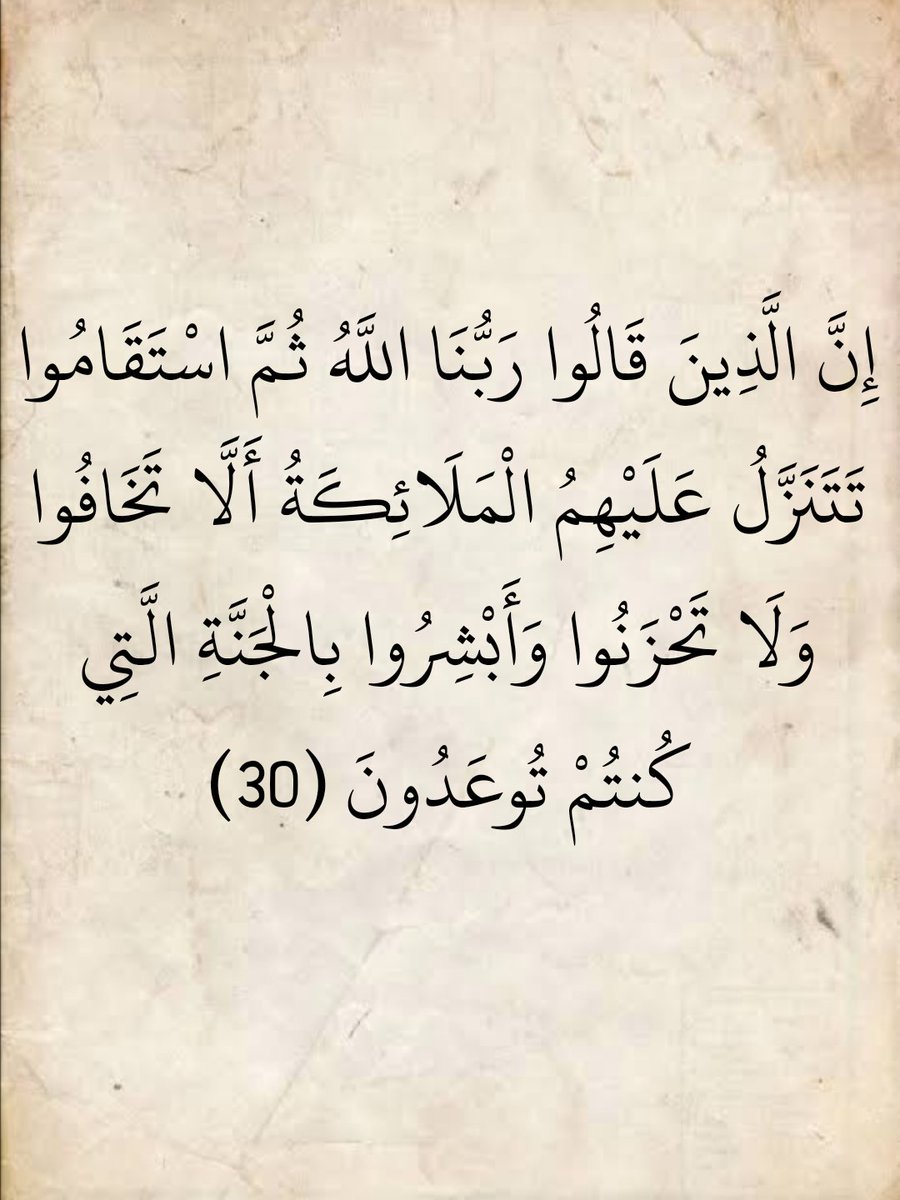 إِنَّ الَّذِينَ قَالُوا رَبُّنَا اللَّهُ ثُمَّ اسْتَقَامُوا
تَتَنَزَّلُ عَلَيْهِمُ الْمَلَائِكَةُ أَلَّا تَخَافُوا
وَلَا تَحْزَنُوا وَأَبْشِرُوا بِالْجَنَّةِ الَّتِي
كُنتُمْ تُوعَدُونَ (30)